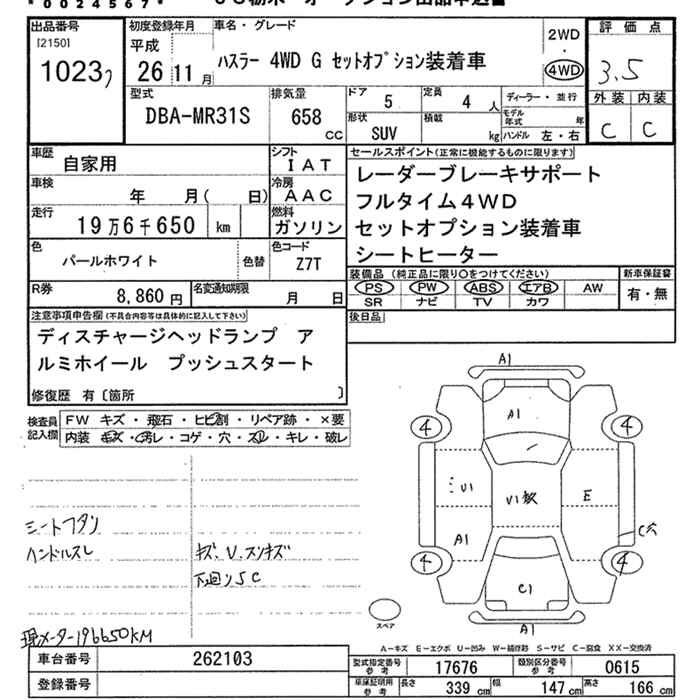 * 0 0 2 4 5 6 7 *
出品番号
[2150]
1023
初度登録年月
平成
26 11月
車名・グレード
ハスラー 4WD G セットオプション装着車
2WD
・
4WD
評価点
3.5
外装 内装
C C
型式
DBA-MR31S
排気量
658
cc
ドア
5
定員
4 人
形状
SUV
積載
kg
ディーラー・並行
モデル年式 年
ハンドル 左・右
車歴
自家用
シフト
I A T
車検
年 月( 日)
冷房
A A C
走行
19万6千650 km
燃料
ガソリン
色
パールホワイト
色替
色コード
Z7T
R券
8,860 円
名変通知期限
月 日
セールスポイント(正常に機能するものに限ります)
レーダーブレーキサポート
フルタイム4WD
セットオプション装着車
シートヒーター
装備品 (純正品に限り○をつけてください)
PS PW ABS エアB AW
SR ナビ TV カワ
新車保証書
有・無
後日品
注意事項申告欄(不具合内容等は具体的に記入して下さい)
ディスチャージヘッドランプ ア
ルミホイール プッシュスタート
修復歴 有〔箇所 〕
検査員記入欄
FW キズ・飛石・ヒビ割・リペア跡・×要
内装 キズ・汚レ・コゲ・穴・スレ・キレ・破レ
A1
A1
4 4
U1
E
A1
4 4
C1
A1
スペア
ハンドルスレ
キズ、U、スソキズ
下廻りSC
196650KM
A－キズ E－エクボ U－凹み W－補修跡 S－サビ C－腐食 XX－交換済
車台番号
262103
登録番号
型式指定番号 参考
17676
類別区分番号 参考
0615
車庫証明用 参考
長さ 339 cm
幅 147 cm
高さ 166 cm